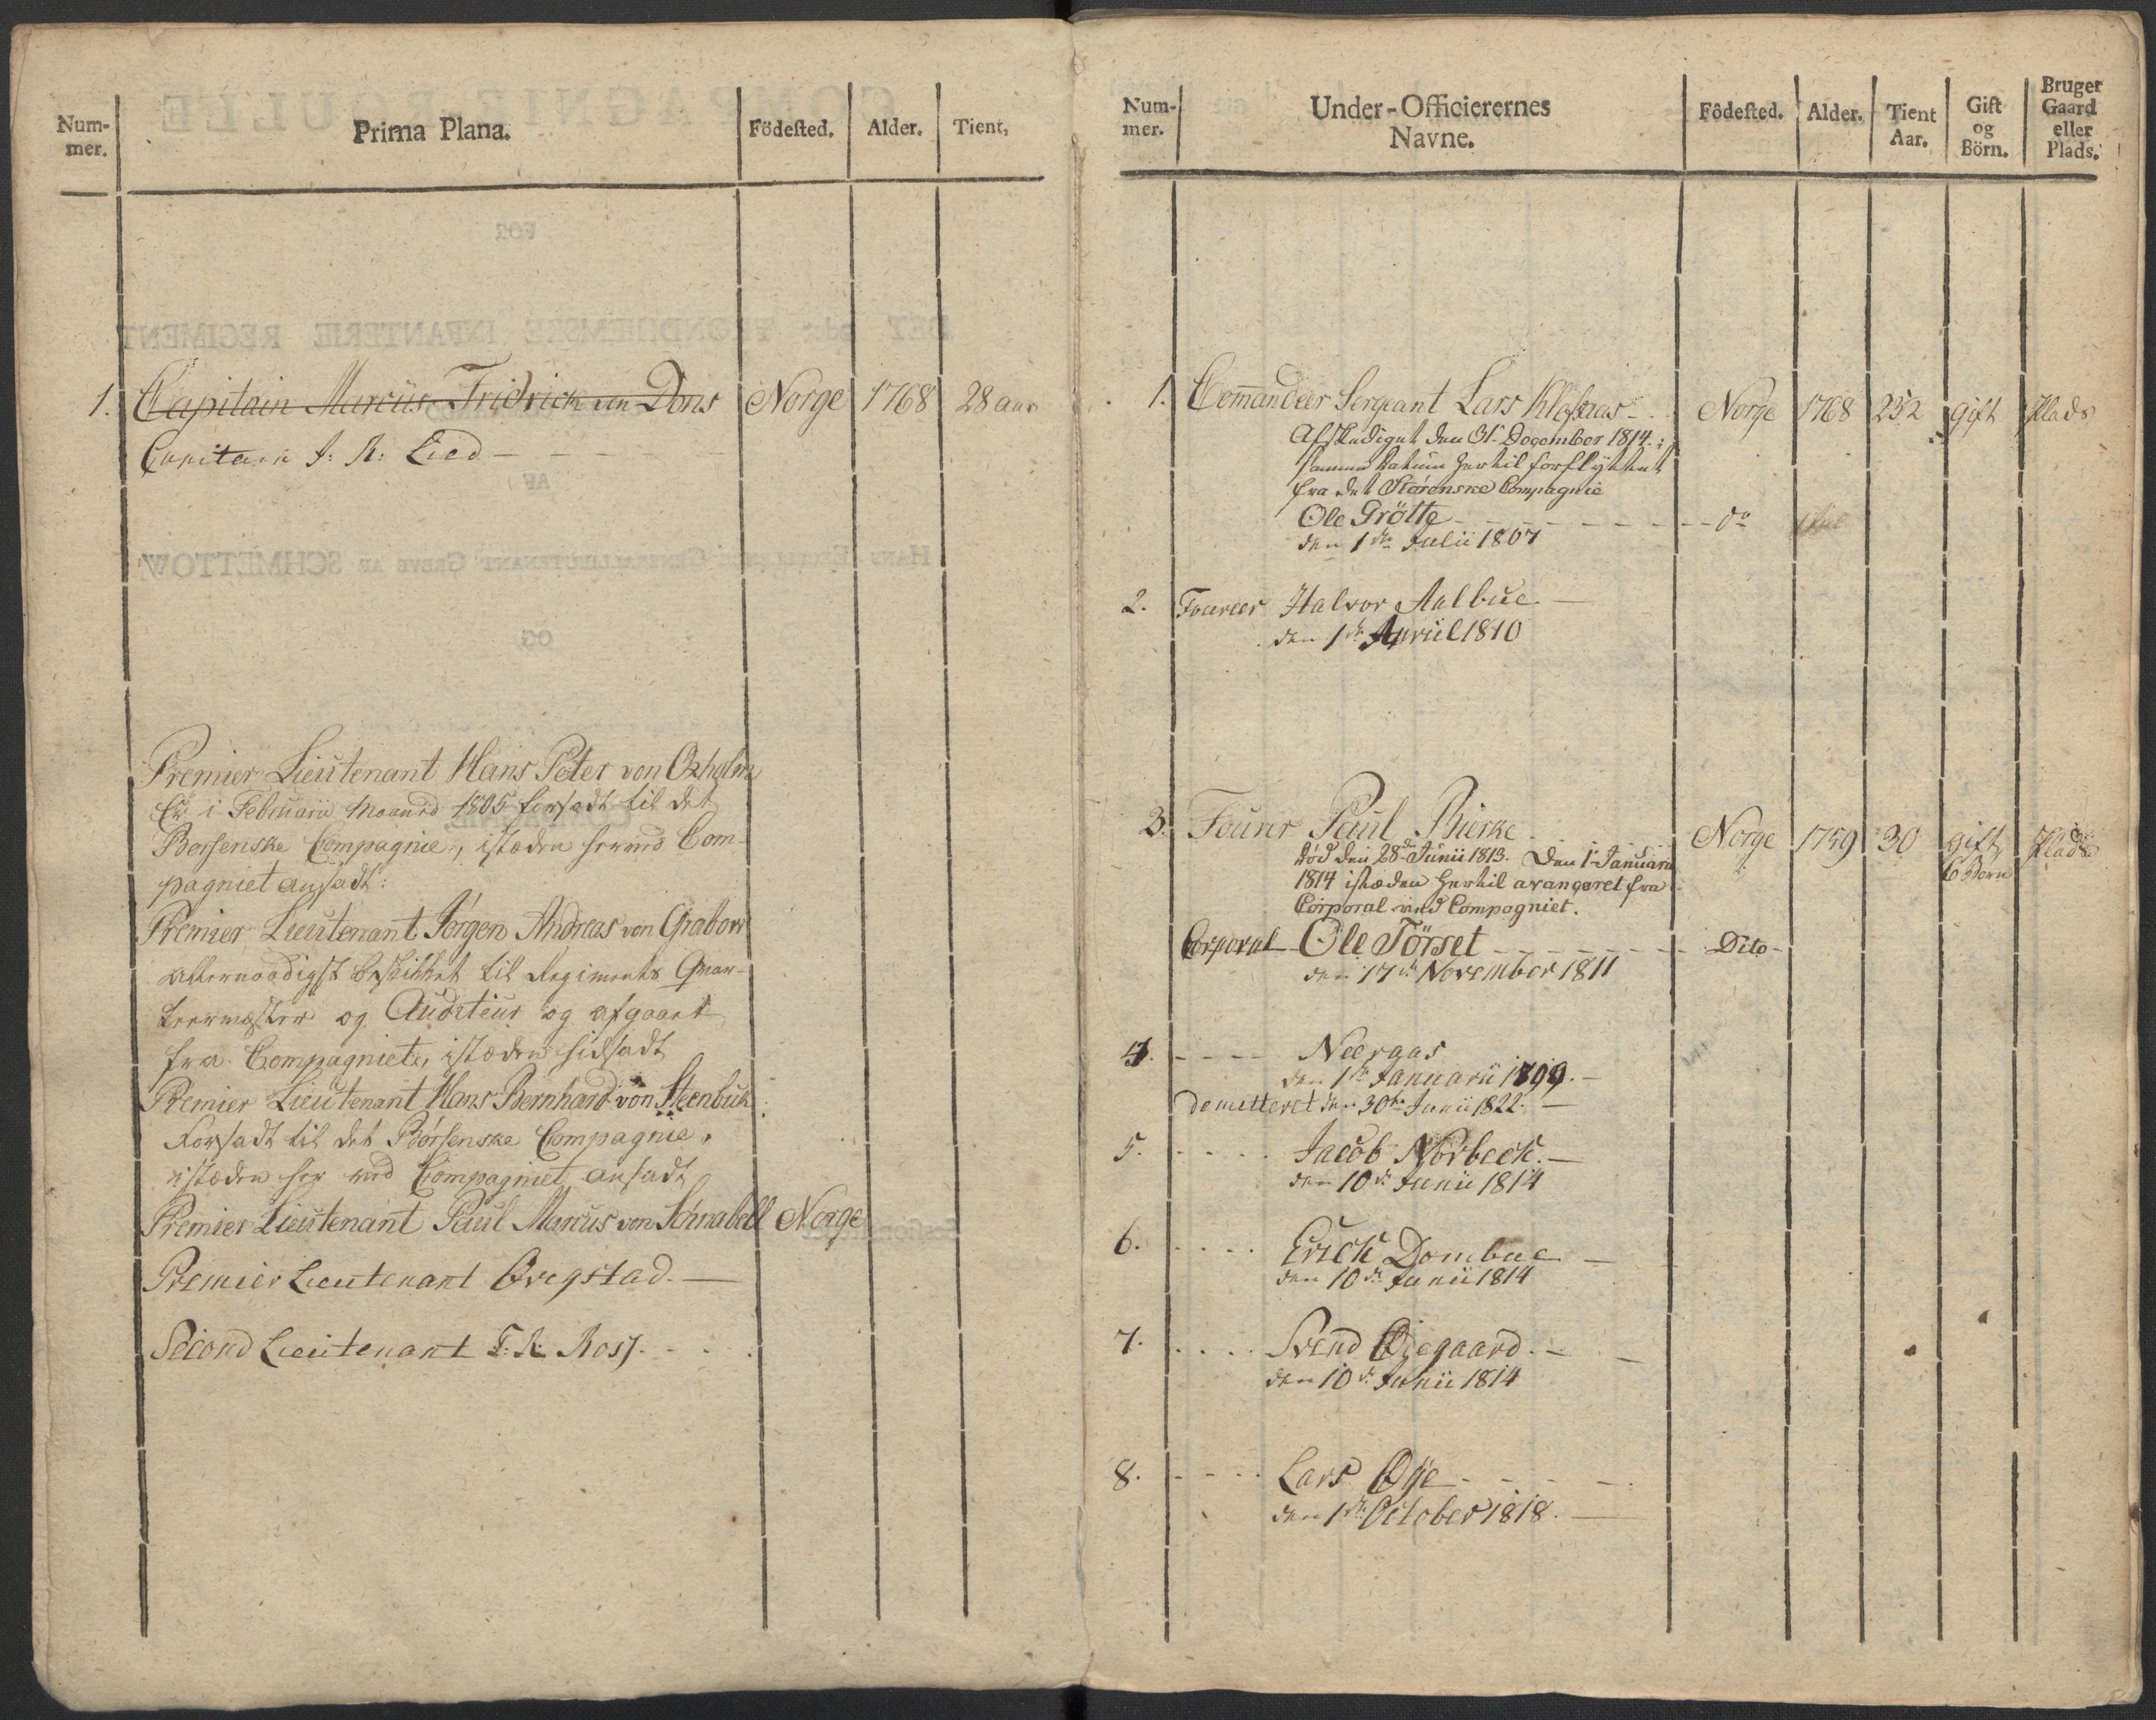 Num-
mer.
Prima Plana.
Födested.
Alder.
Tient,
1. Capitain Marcus Fridrich von Dons Norge 1768 28 aar
Capitain J: R: Lied
Premier Lieutenant Hans Peter von Oxholm
Er i Februarii Maaned 1805 forsadt til det
Børsenske Compagnie, istæden herved Com-
pagniet ansadt:
Premier Lieutenant Jörgen Andreas von Grabow
allernaadigst beskikket til Regiments Qvar-
teermester og Auditeur og afgaaet
fra Compagniet, istæden hidsadt
Premier Lieutenant Hans Bernhard von Steenbuk
Forsadt til det Börsenske Compagnie,
istæden her ved Compagniet ansadt
Premier Lieutenant Paul Marcus von Schnabell Norge
Premier Lieutenant Bregstad.
Second Lieutenant T. R. Ross.
Num-
mer.
Under-Officierernes
Navne.
Födested.
Alder.
Tient
Aar.
Gift
og
Börn.
Bruger
Gaard
eller
Plads.
1. Commandeer Sergeant Lars Klefsaas Norge 1768 25 1/2 gift Plads
Afskediget den 31. December 1814.;
samme Datum hertil forflyttet
fra det Størenske Compagnie
Ole Grötte do
den 1de Julii 1807
2. Foureer Halvor Aalbue
den 1de Apriil 1810
3. Fourer Paul Bierke Norge 1759 30 gift Plads
6 Børn
død den 28de Junii 1813. Den 1. Januarii
1814 istæden hertil arangeret fra
Corporal ved Compagniet.
Corporal Ole Törset Dito
den 17de November 1811
4. Neergas
den 1ste Januarii 1799.
demitteret den 30te Junii 1822.
5. Jacob Norbeck.
den 10de Junii 1814
6. Erick Dombue
den 10de Junii 1814
7. Svend Øjegaard.
den 10de Junii 1814
8. Lars Øye
den 1de October 1818.